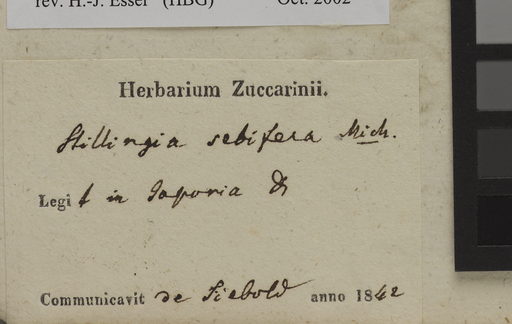 rev. H.-J. Esser (HBG) Oct. 2002
Herbarium Zuccarinii.
Stillingia sebifera Mich.
Legit in Japonia
Communicavit de Siebold anno 1842